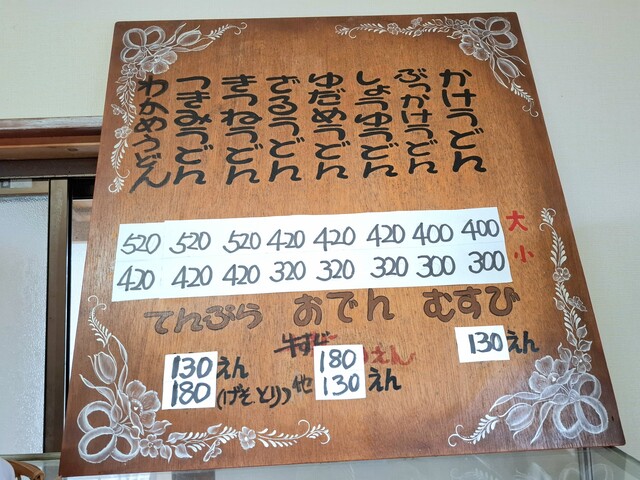 かけうどん
ぶっかけうどん
しょうゆうどん
ゆだめうどん
ざるうどん
きつねうどん
つきみうどん
わかめうどん
520 520 520 420 420 420 400 400 大
420 420 420 320 320 320 300 300 小
てんぷら おでん むすび
130えん
180(げそ、とり)
牛すじ 180えん
他 130えん
130えん